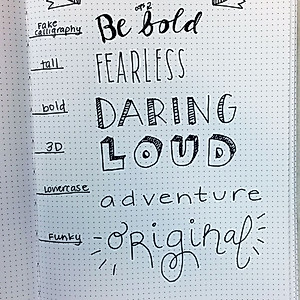 Fake calligraphy
oops
Be bold
tall
FEARLESS
bold
DARING
3D
LOUD
lowercase
adventure
Funky
original